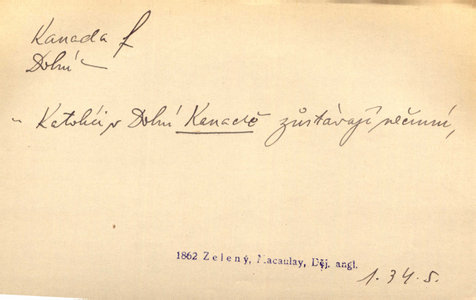 Kanada f
Dolní –
„ Katolíci v Dolní Kanadě zůstávají nečinni,
1862 Zelený, Macaulay, Děj. angl.
1.34.s.